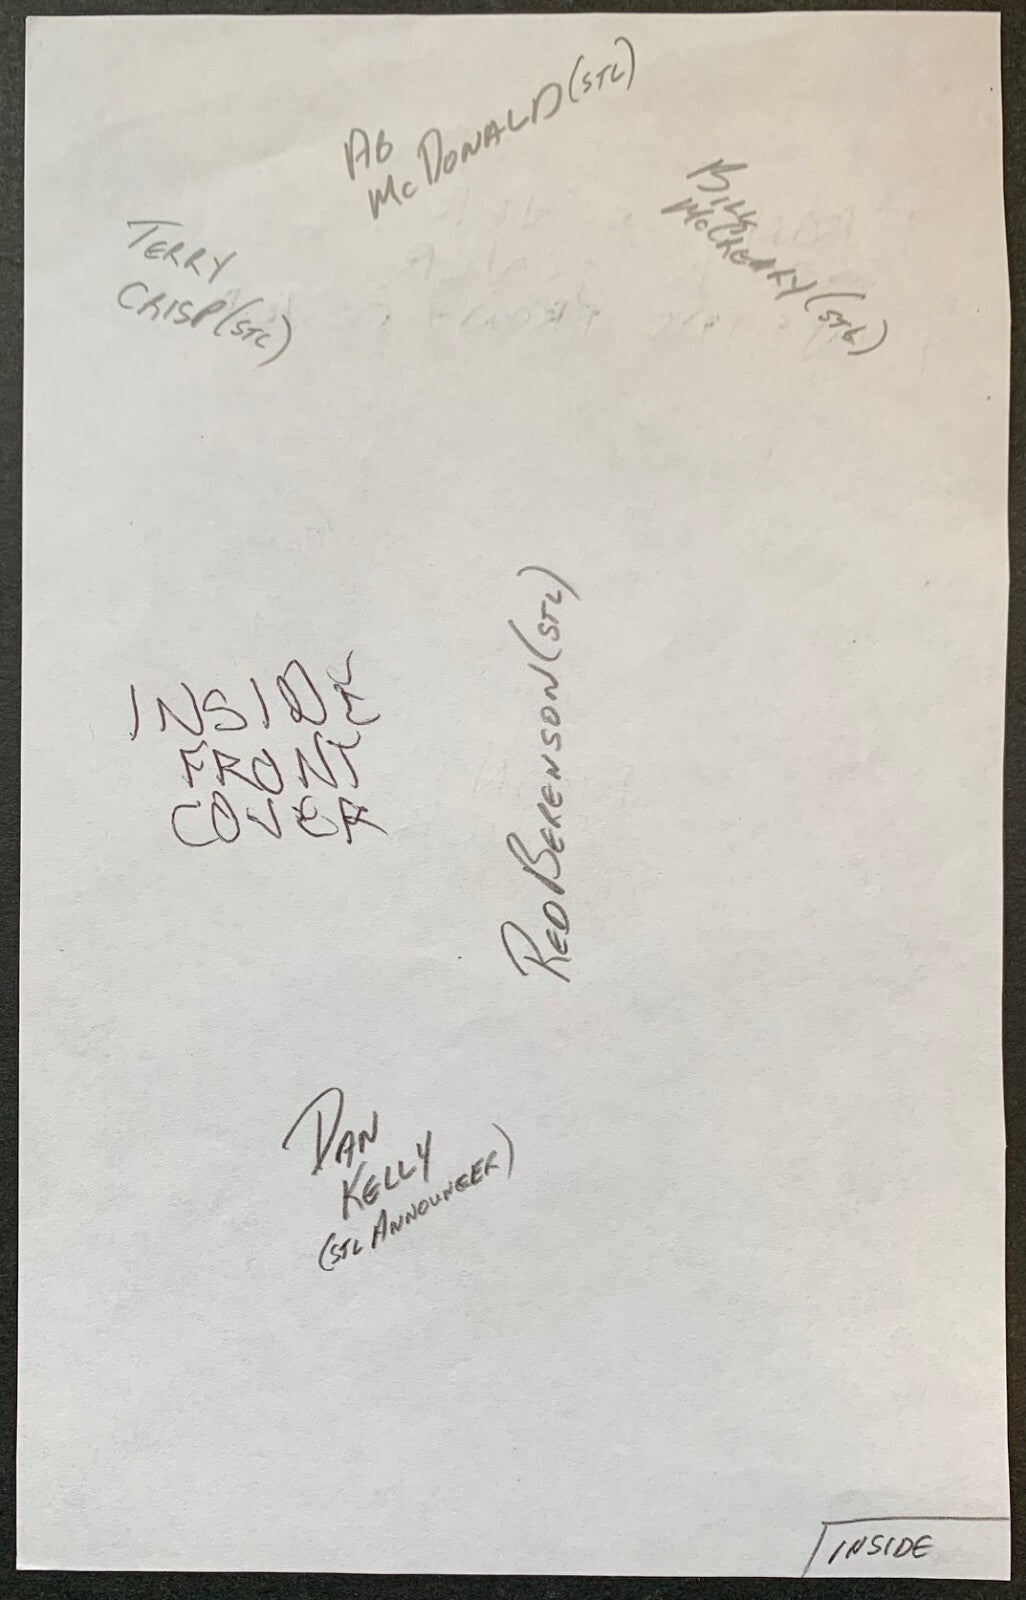 AB
McDONALD (STL)
BILL
McCREARY (STL)
TERRY
CRISP (STL)
INSIDE
FRONT
COVER
RED BERENSON (STL)
DAN
KELLY
(STL ANNOUNCER)
INSIDE